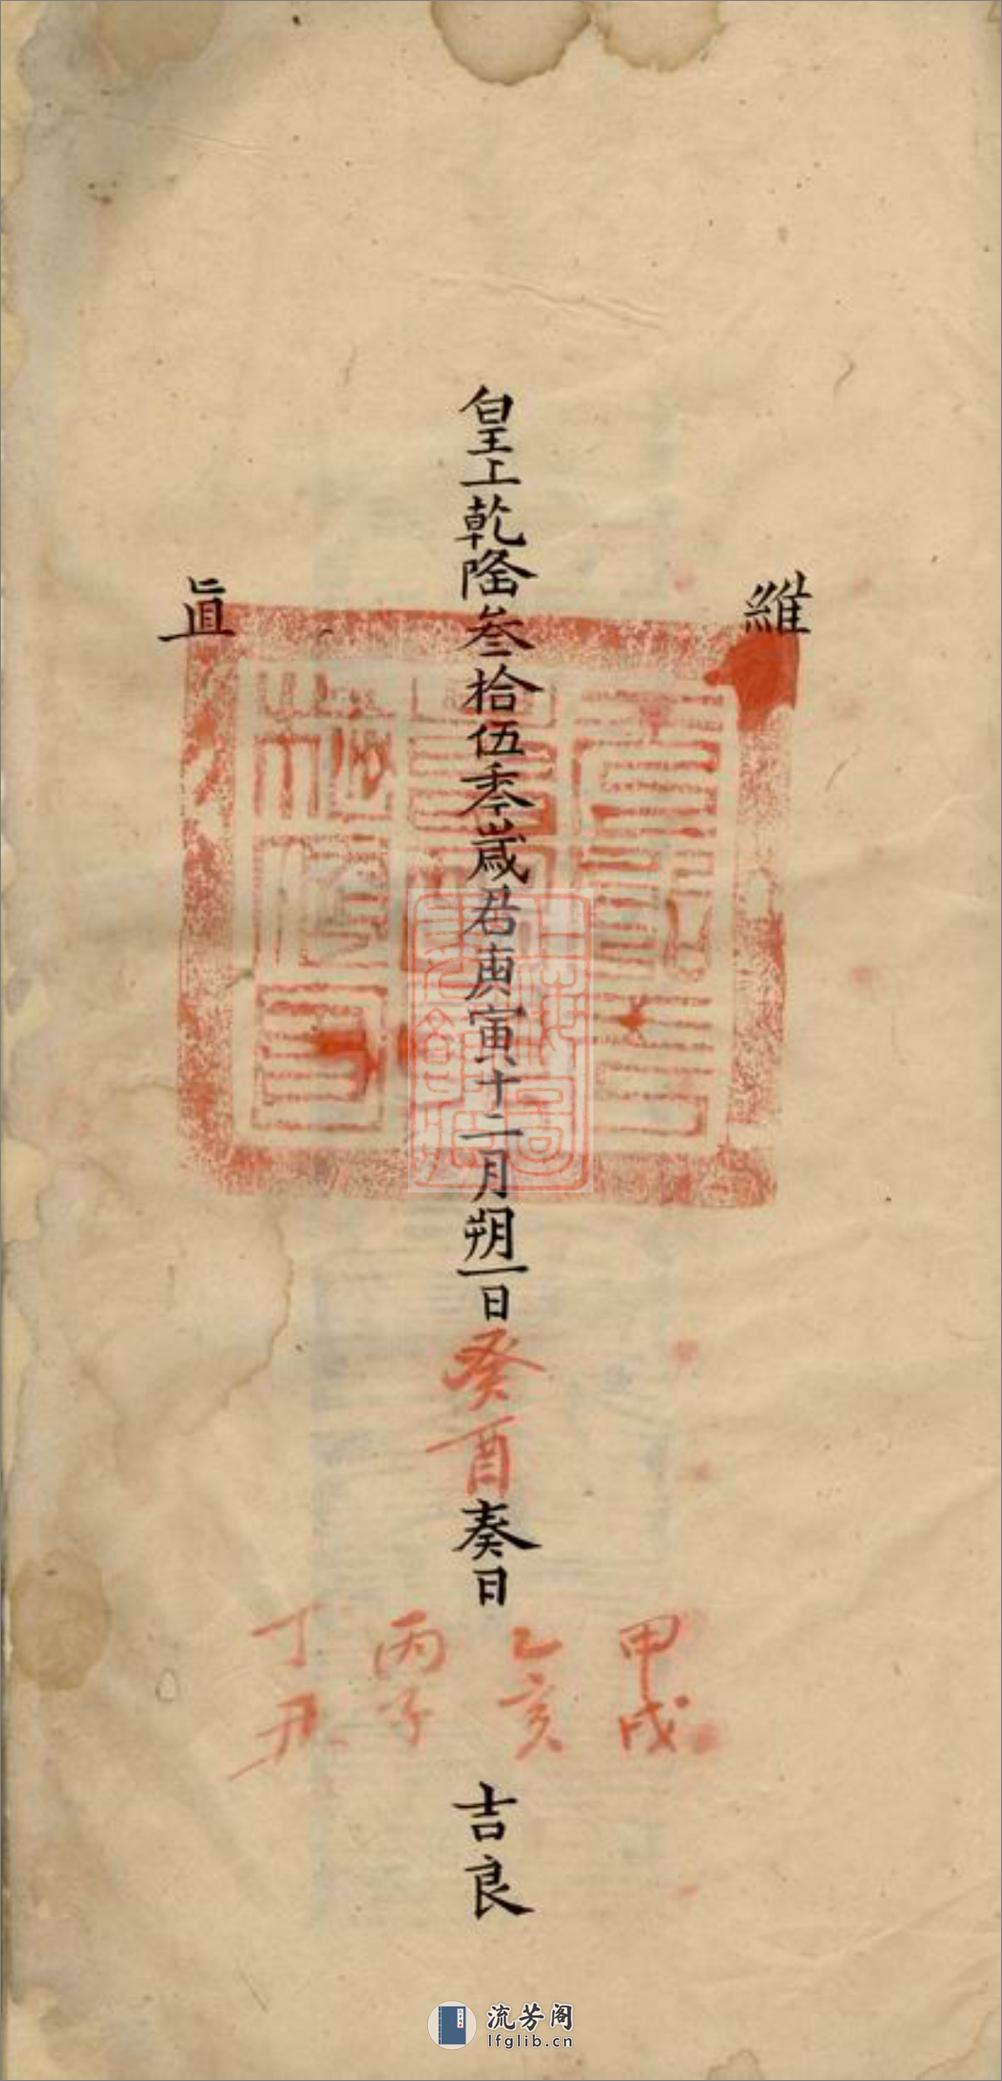 維
皇上乾隆叄拾伍季歲君庚寅十二月朔一日癸酉奏日
甲戌
乙亥
丙子
丁丑
吉良
眞
流芳阁
lfglib.cn